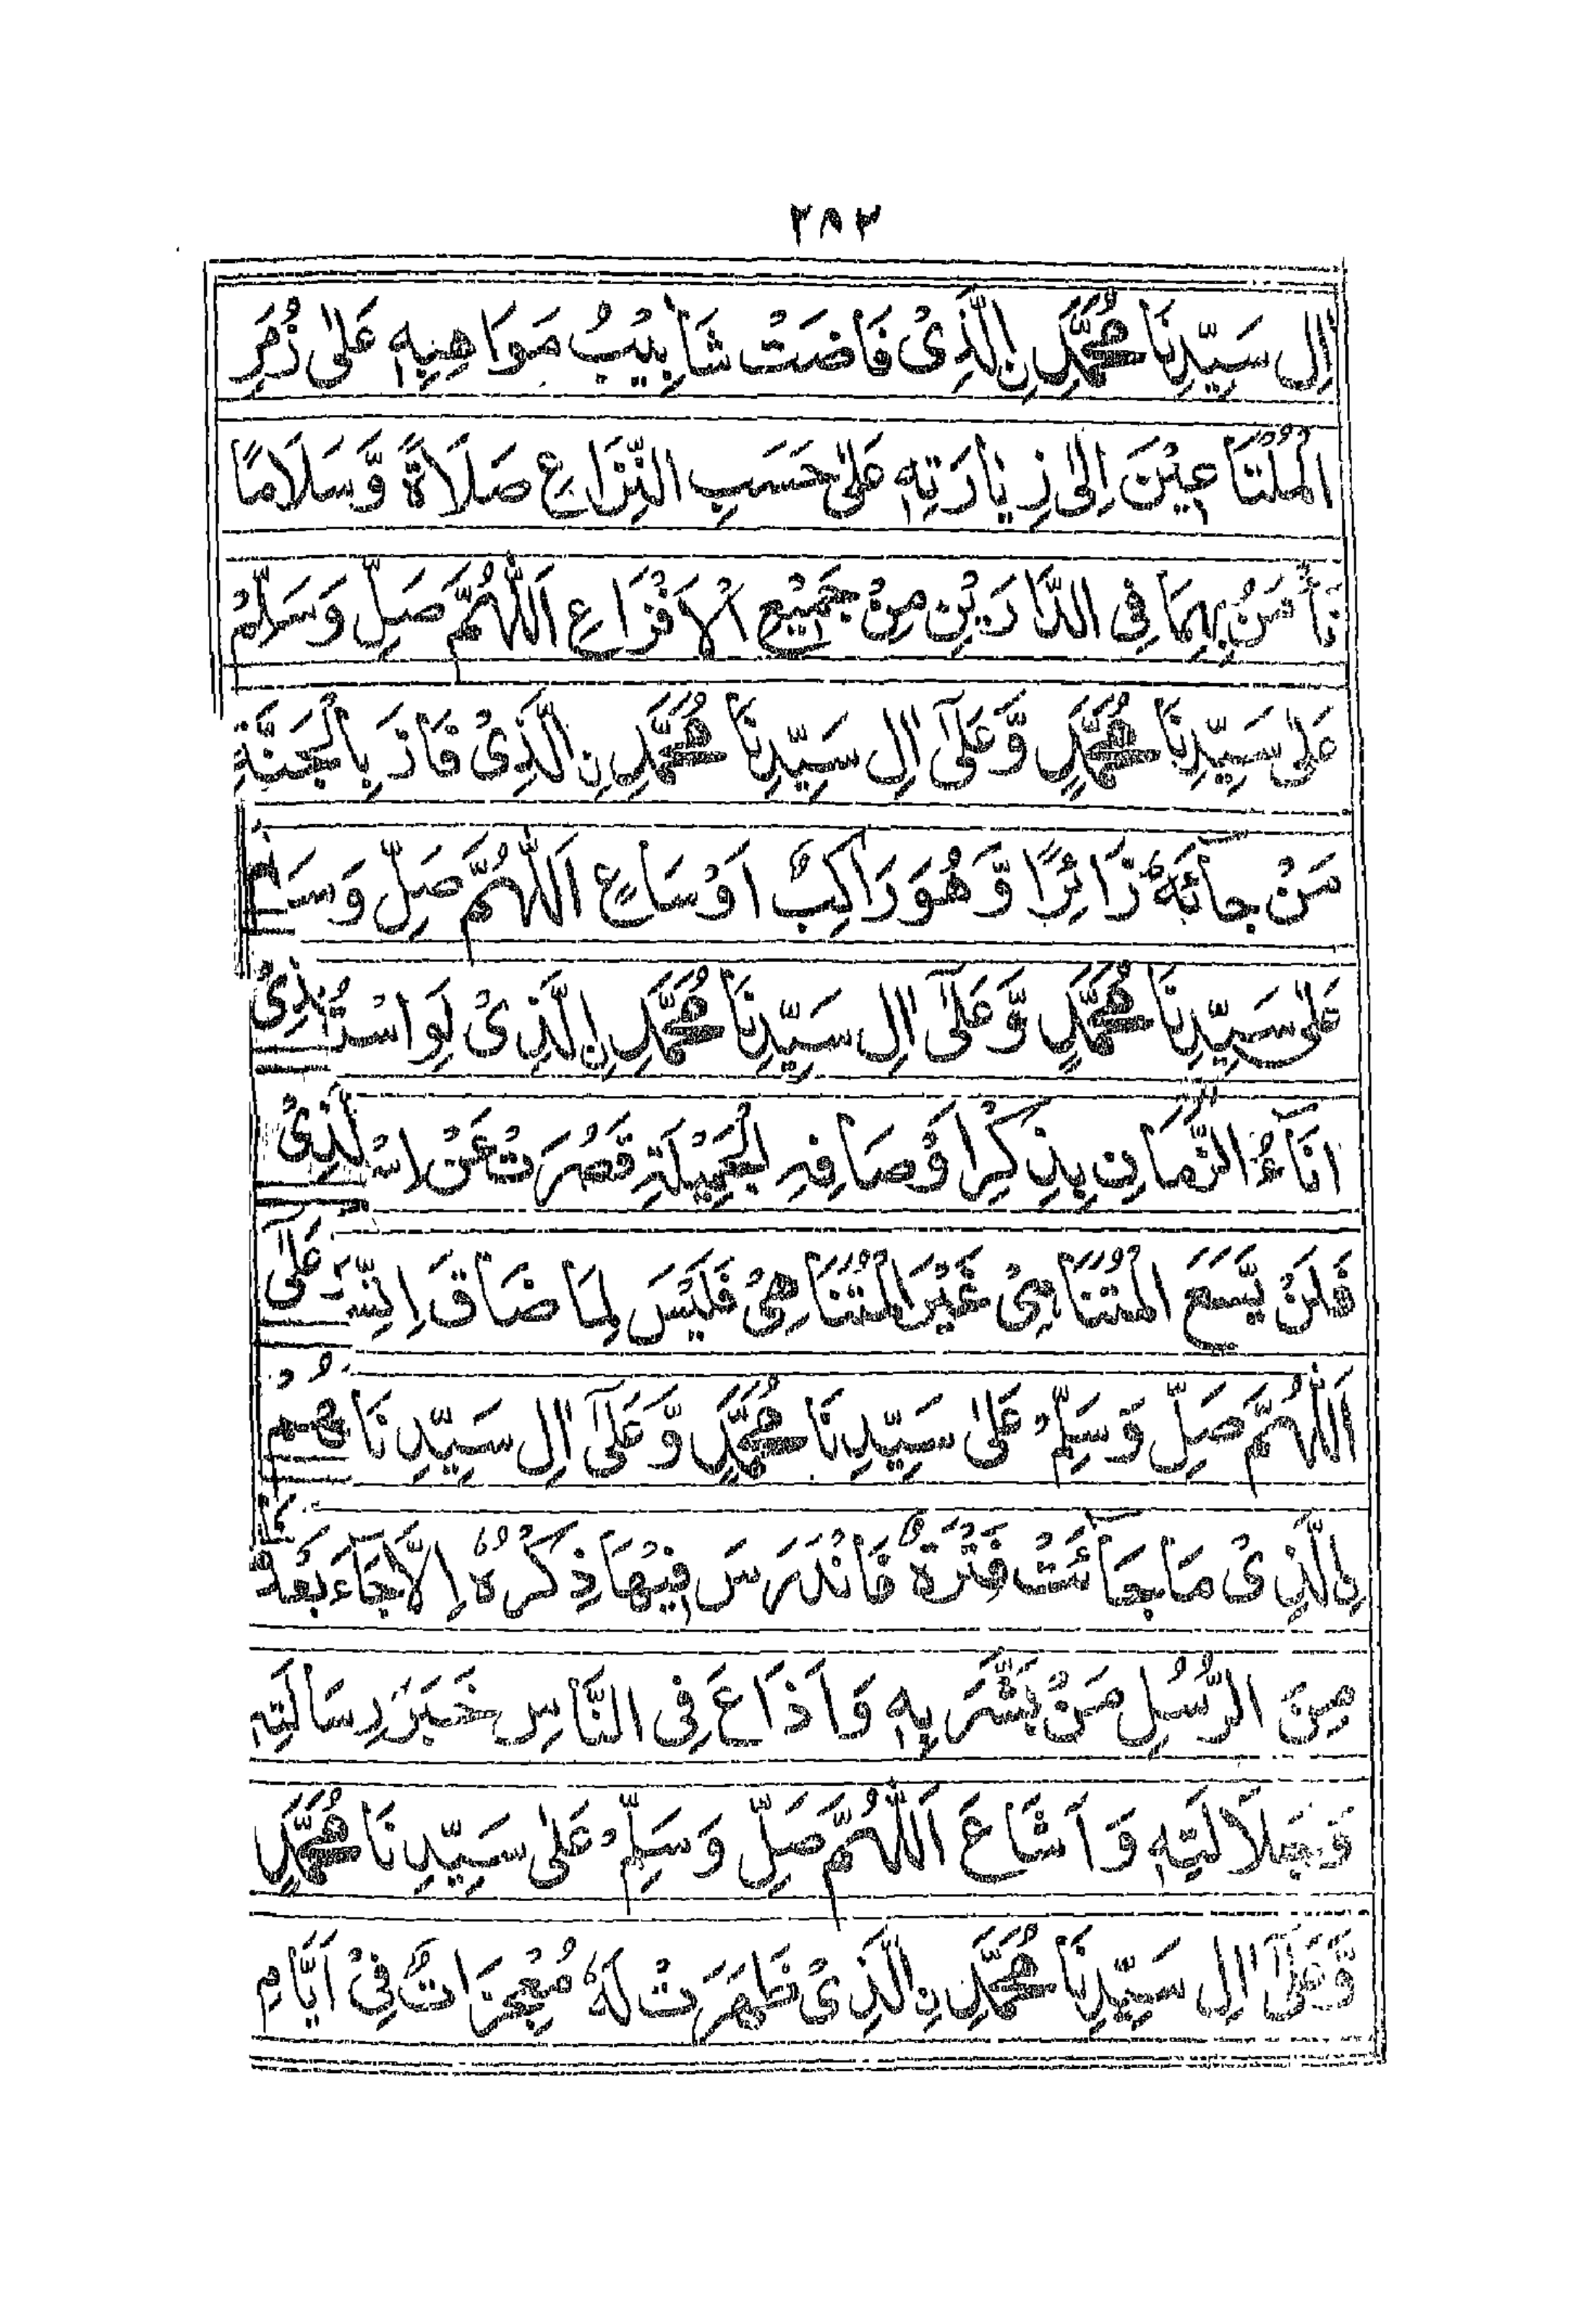 ٢٨٣
اٰلِ سَيِّدِنَا مُحَمَّدِ نِ الَّذِىْ فَاضَتْ شَاٰبِيْبُ مَوَاهِبِهٖ عَلٰى زُمَرِ
الْمُلْتَاعِيْنَ اِلٰى زِيَارَتِهٖ عَلٰى حَسَبِ النِّزَاعِ صَلَاةً وَّسَلَامًا
نَأْمَنُ بِهِمَا فِى الدَّارَيْنِ مِنْ جَمِيْعِ الْاَفْزَاعِ اَللّٰهُمَّ صَلِّ وَسَلِّمْ
عَلٰى سَيِّدِنَا مُحَمَّدٍ وَّعَلٰٓى اٰلِ سَيِّدِنَا مُحَمَّدِ نِ الَّذِىْ فَازَ بِالْجَنَّةِ
مَنْ جَآئَهٗ زَائِرًا وَّهُوَ رَاكِبٌ اَوْ سَاعٍ اَللّٰهُمَّ صَلِّ وَسَ
عَلٰى سَيِّدِنَا مُحَمَّدٍ وَّعَلٰٓى اٰلِ سَيِّدِنَا مُحَمَّدِ نِ الَّذِىْ لَوِ
اٰنَآءُ الزَّمَانِ بِذِكْرِ اَوْصَافِهِ الْجَمِيْلَةِ قَصُرَتْ عَنْ
فَلَنْ يَّسَعَ الْمُتَنَاهِىْ غَيْرَ الْمُتَنَاهِىْ فَلَيْسَ لِمَا ضَاقَ
اَللّٰهُمَّ صَلِّ وَسَلِّمْ عَلٰى سَيِّدِنَا مُحَمَّدٍ وَّعَلٰٓى اٰلِ سَيِّدِنَا
نِ الَّذِىْ مَا جَآئَتْ فَتْرَةٌ فَانْدَرَسَ فِيْهَا ذِكْرُهٗ اِلَّا جَآءَ بَعْدَ
مِنَ الرُّسُلِ مَنْ بَشَّرَ بِهٖ وَاَذَاعَ فِى النَّاسِ خَبَرَ رِسَالَتِهٖ
وَجَلَالَتِهٖ وَاَشَاعَ اَللّٰهُمَّ صَلِّ وَسَلِّمْ عَلٰى سَيِّدِنَا مُحَمَّدٍ
وَّعَلٰٓى اٰلِ سَيِّدِنَا مُحَمَّدِ نِ الَّذِىْ ظَهَرَتْ لَهٗ مُعْجِزَاتٌ فِىْ اَيَّامِ